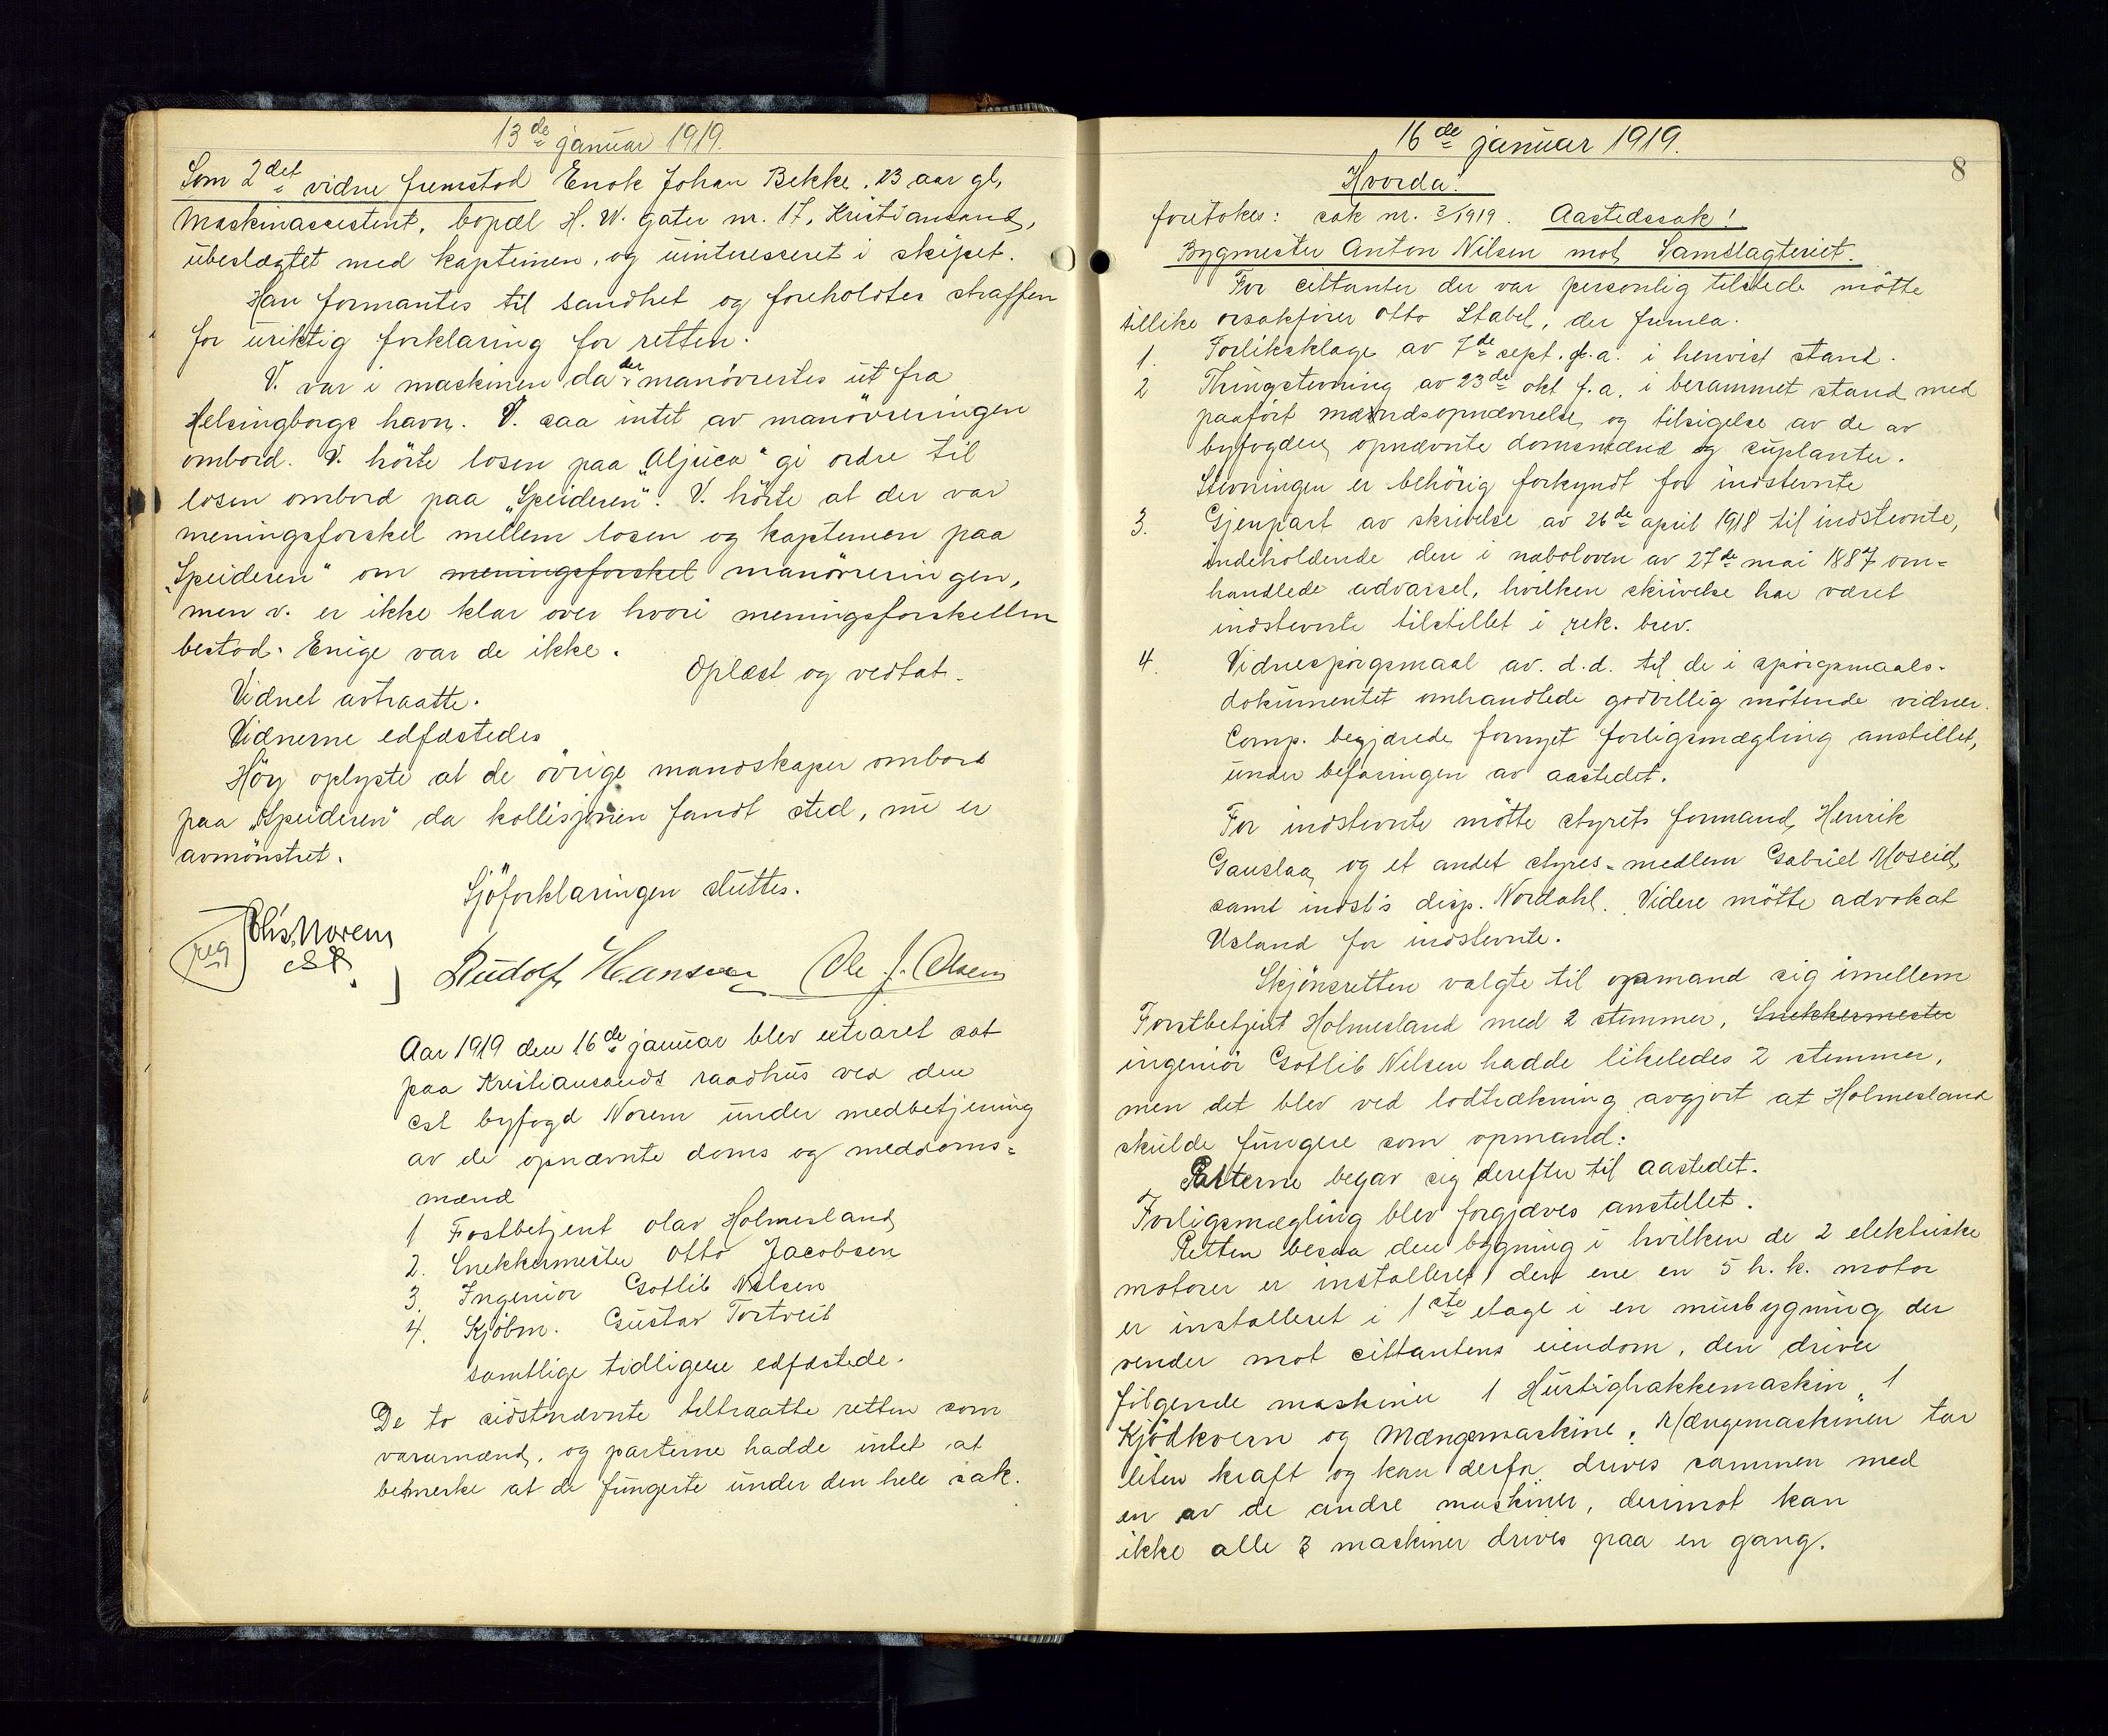 13de januar 1919.
Som 2det vidne fremstod Enok Johan Bekke, 23 aar gl,
maskinassistent, bopæl H. W. gaten nr. 17, Kristiansand,
ubeslægtet med kapteinen, og uinteresseret i skipet.
Han formantes til sandhet og foreholdtes straffen
for uriktig forklaring for retten.
V. var i maskinen da der manövrertes ut fra
Helsingborgs havn. V. saa intet av manövreringen
ombord. V. hörte losen paa „Aljuca“ gi ordre til
losen ombord paa „Speideren“. V. hörte at der var
meningsforskel mellem losen og kapteinen paa
„Speideren“ om meningsforskel manövreringen,
men v. er ikke klar over hvori meningsforskellen
bestod. Enige var de ikke.
Oplæst og vedtat.
Vidnet avtraatte.
Vidnerne edfæstedes
Höy oplyste at de övrige mandskaper ombord
paa „Speideren“ da kollisjonen fandt sted, nu er
avmönstret.
Sjöforklaringen sluttes.
reg
Chs. Norem
cst.
Rudolf Hansen Ole J. Olsen
Aar 1919 den 16de januar blev extraret sat
paa Kristiansands raadhus ved den
cst byfogd Norem under medbetjening
av de opnævnte doms og meddoms=
mænd
1 Forstbetjent Olav Holmesland
2. Snekkermester Otto Jacobsen
3. Ingeniör Gotlib Nilsen
4. Kjöbm. Gustav Tortveit
samtlige tidligere edfæstede.
De to sidstnævnte tiltraatte retten som
varamænd, og parterne hadde intet at
bemerke at de fungerte under den hele sak.
16de januar 1919.
8
Hvorda!
foretokes: sak nr. 3/1919. Aastedssak!
Bygmester Anton Nilsen mot Samslagteriet.
For cittanten der var personlig tilstede mötte
tillike orsakförer Otto Stabel, der fremla.
1. Forliksklage av 7de sept. f.a. i henvist stand.
2 Thingstevning av 23de okt f.a. i berammet stand med
paafört mændsopnævnelse og tilsigelse av de av
byfogden opnævnte domsmænd og suplanter.
Stevningen er behörig forkyndt for indstevnte
3. Gjenpart av skrivelse av 26de april 1918 til indstevnte,
indeholdende den i naboloven av 27de mai 1887 om=
handlede advarsel, hvilken skrivelse har været
indstevnte tilstillet i rek. brev.
4. Vidnespörgsmaal av. d.d. til de i spörgsmaals-
dokumentet omhandlede godvillig mötende vidner.
Comp. begjærede fornyet forligsmægling anstillet,
under befaringen av aastedet.
For indstevnte mötte styrets formand, Henrik
Gauslaa, og et andet styres-medlem Gabriel Moseid,
samt indst's disp. Nordahl. Videre mötte advokat
Usland for indstevnte.
Skjönsretten valgte til opmand sig imellem
Forstbetjent Holmesland med 2 stemmer, Snekkermester
ingeniör Gotlib Nilsen hadde likeledes 2 stemmer,
men det blev ved lodtrækning avgjort at Holmesland
skulde fungere som opmand.
Parterne begav sig derefter til aastedet.
Forligsmægling blev forgjæves anstillet.
Retten besaa den bygning i hvilken de 2 elektriske
motorer er installeret, den ene en 5 h.k. motor
er installeret i 1ste etage i en murbygning der
vender mot cittantens eiendom, den driver
fölgende maskiner 1 Hurtighakkemaskin, 1
Kjödkvern og Mængemaskine. Mængemaskinen tar
liten kraft og kan derfor drives sammen med
en av de andre maskiner, derimot kan
ikke alle 3 maskiner drives paa en gang.